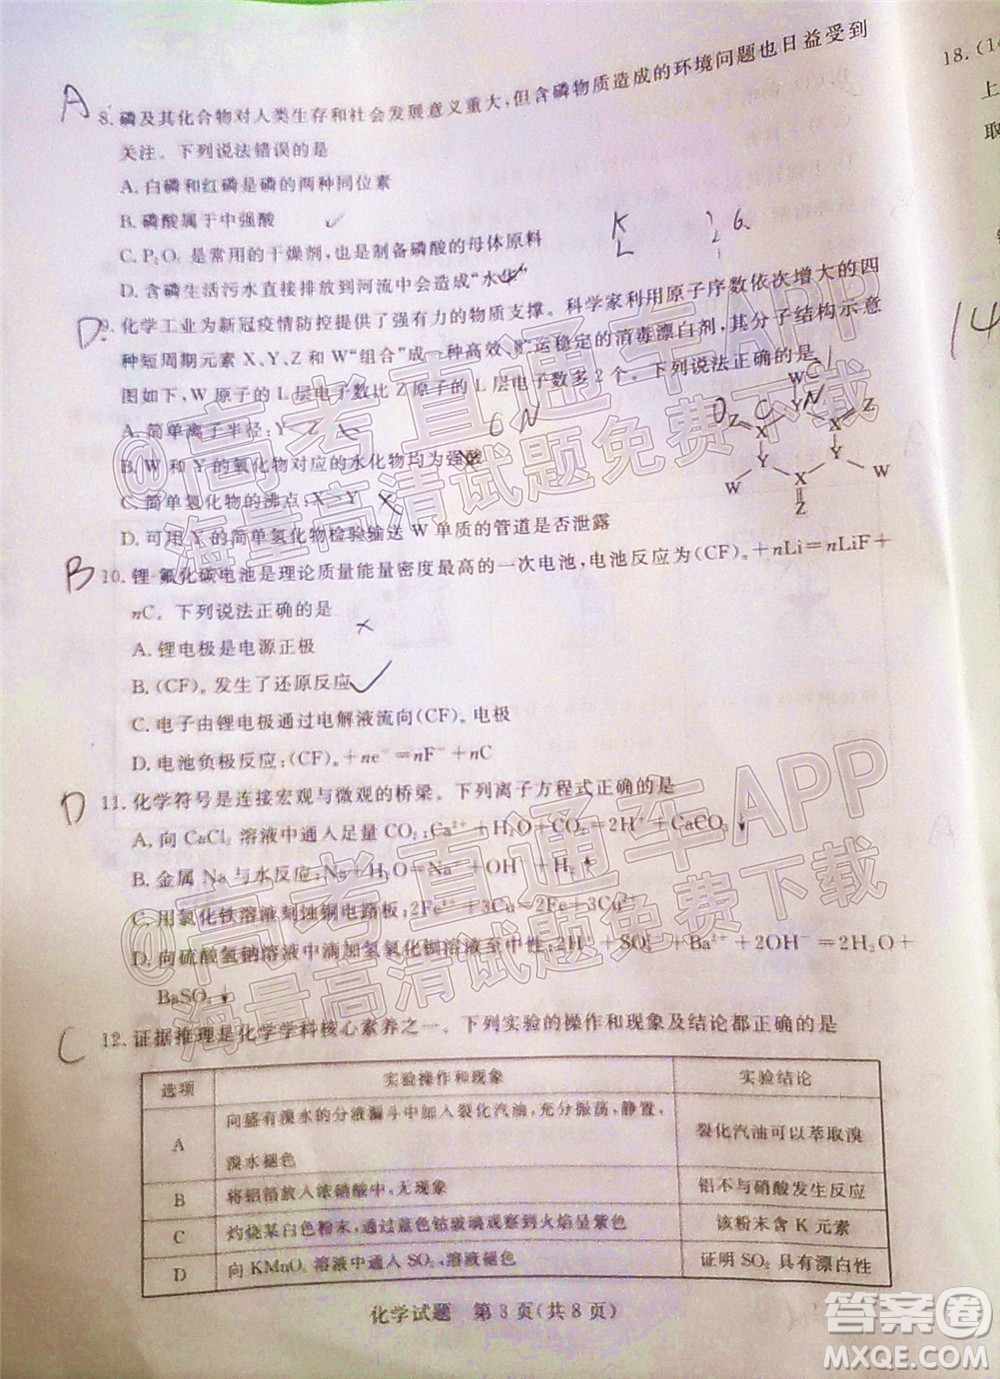 18.(14
上
取
A 8. 磷及其化合物对人类生存和社会发展意义重大,但含磷物质造成的环境问题也日益受到
关注。下列说法错误的是
A. 白磷和红磷是磷的两种同位素
B. 磷酸属于中强酸
C. P₂O₅ 是常用的干燥剂,也是制备磷酸的母体原料
D. 含磷生活污水直接排放到河流中会造成“水华”
K 2 6
L
D 9. 化学工业为新冠疫情防控提供了强有力的物质支撑。科学家利用原子序数依次增大的四
种短周期元素 X、Y、Z 和 W“组合”成一种高效、贮运稳定的消毒漂白剂,其分子结构示意
图如下,W 原子的 L 层电子数比 Z 原子的 L 层电子数多 2 个。下列说法正确的是
A. 简单离子半径:Y Z
B. W 和 Y 的氧化物对应的水化物均为强酸
C. 简单氢化物的沸点:X Y
D. 可用 Y 的简单氢化物检验输送 W 单质的管道是否泄露
W
Z X Y X Z
Y Y
W X W
Z
14
B 10. 锂 氟化碳电池是理论质量能量密度最高的一次电池,电池反应为(CF)ₙ+nLi=nLiF+
nC。下列说法正确的是
A. 锂电极是电源正极
B. (CF)ₙ 发生了还原反应
C. 电子由锂电极通过电解液流向(CF)ₙ 电极
D. 电池负极反应:(CF)ₙ+ne⁻=nF⁻+nC
D 11. 化学符号是连接宏观与微观的桥梁。下列离子方程式正确的是
A. 向 CaCl₂ 溶液中通入足量 CO₂:Ca²⁺+H₂O+CO₂=2H⁺+CaCO₃↓
B. 金属 Na 与水反应:Na+H₂O=Na⁺+OH⁻+H₂↑
C. 用氯化铁溶液刻蚀铜电路板:2Fe³⁺+3Cu=2Fe+3Cu²⁺
D. 向硫酸氢钠溶液中滴加氢氧化钡溶液至中性:2H⁺+SO₄²⁻+Ba²⁺+2OH⁻=2H₂O+
BaSO₄↓
C 12. 证据推理是化学学科核心素养之一。下列实验的操作和现象及结论都正确的是
选项 实验操作和现象 实验结论
A 向盛有溴水的分液漏斗中加入裂化汽油,充分振荡,静置,溴水褪色 裂化汽油可以萃取溴
B 将铝箔放入浓硝酸中,无现象 铝不与硝酸发生反应
C 灼烧某白色粉末,透过蓝色钴玻璃观察到火焰呈紫色 该粉末含 K 元素
D 向 KMnO₄ 溶液中通入 SO₂,溶液褪色 证明 SO₂ 具有漂白性
化学试题 第 3 页(共 8 页)
@高考直通车APP
海量高清试题免费下载
@高考直通车APP
海量高清试题免费下载
答案圈
MXQE.COM